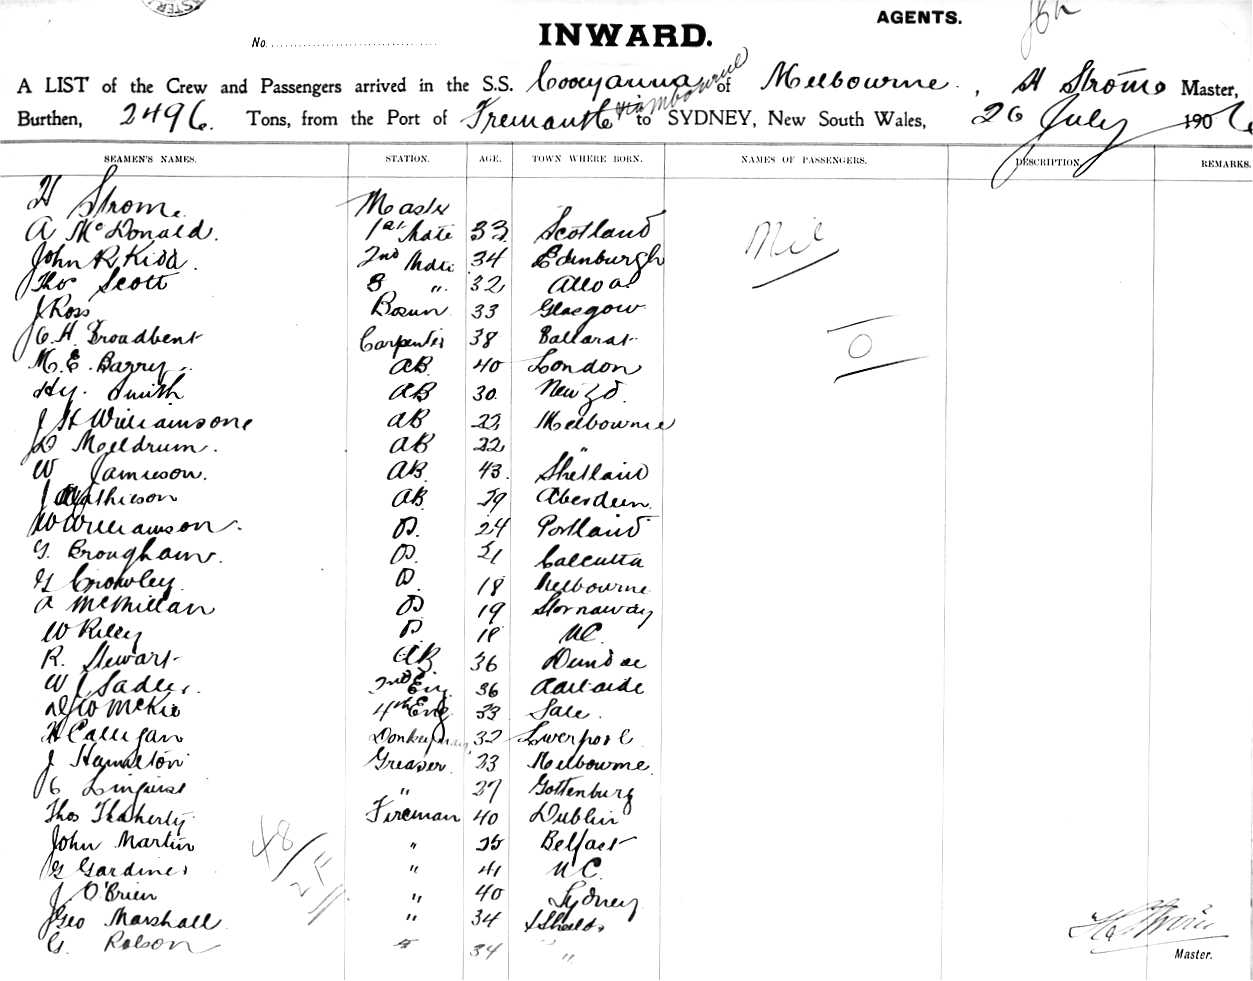 AGENTS.
No.
INWARD.
A LIST of the Crew and Passengers arrived in the S.S. Cooeyanna of Melbourne, H Strom Master,
Burthen, 2496 Tons, from the Port of Fremantle to SYDNEY, New South Wales, 26 July 190
SEAMEN'S NAMES. STATION. AGE. TOWN WHERE BORN. NAMES OF PASSENGERS. DESCRIPTION REMARKS.
H Strom. Master
A McDonald. 1st Mate 33 Scotland Nil
John R Kidd. 2nd Mate 34 Edinburgh
Thos Scott 3 " 32 Alloa
J Ross Bosun 33 Glasgow
C H Broadbent Carpenter 38 Ballarat O
M. E. Barry AB 40 London
Hy. Smith AB 30 New Zd.
J H Williamson AB 22 Melbourne
D Meldrum. AB 22 "
W Jamieson. AB 43 Shetland
J Mathieson AB 29 Aberdeen
W Williamson. 24 Portland
G. Brougham. 21 Calcutta
G Crowley. 18 Melbourne
A McMillan 19 Stornaway
W Riley 18 NC.
R. Stewart AB 36 Dundee
W J Sadler. 2nd Eng. 36 Adelaide
McKie 4th Eng 33 Sale.
H Calligan Donkeyman 32 Liverpool
J Hamilton Greaser 23 Melbourne
C Linquist " 27 Gottenburg
Thos Flaherty Fireman 40 Dublin
John Martin " 25 Belfast
G Gardiner " 41 NC.
J O'Brien " 40 Sydney
Geo Marshall " 34 S Shields
G. Robson " 34 "
48
Master.